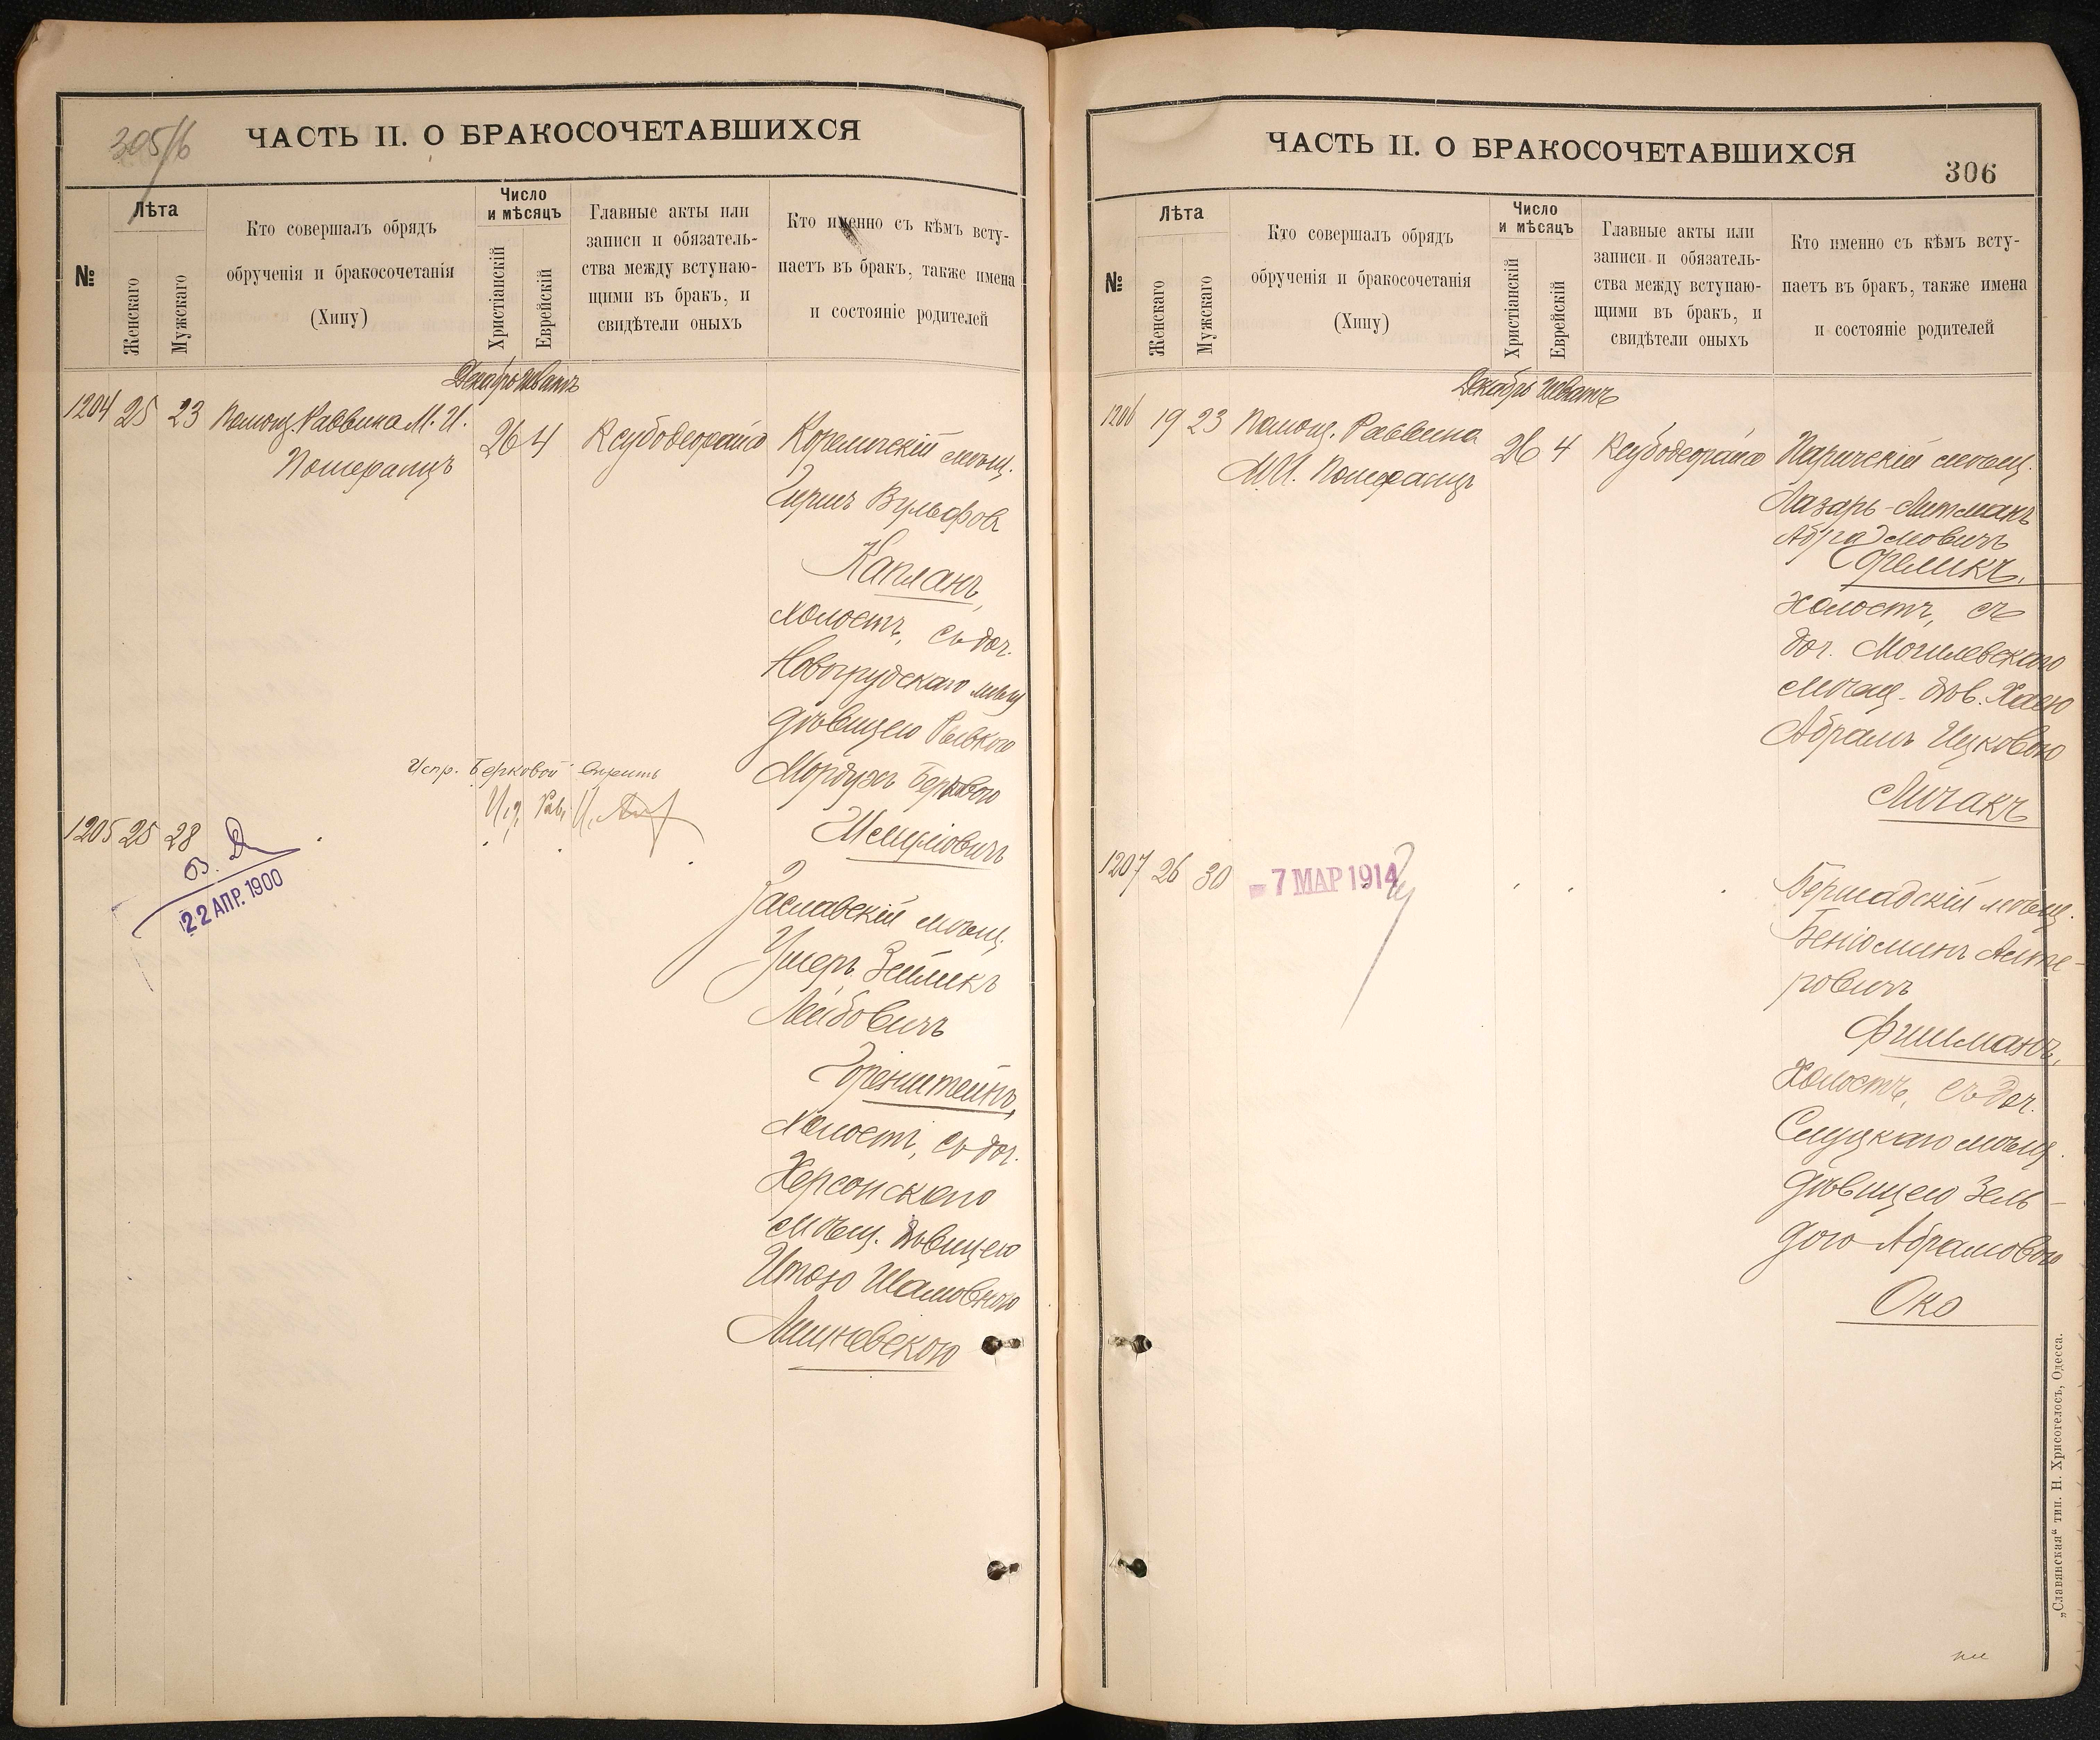 305/6
ЧАСТЬ II. О БРАКОСОЧЕТАВШИХСЯ
№
Лѣта
Женскаго
Мужскаго
Кто совершалъ обрядъ
обрученія и бракосочетанія
(Хипу)
Число
и мѣсяцъ
Христіанскій
Еврейскій
Главные акты или
записи и обязатель-
ства между вступаю-
щими въ бракъ, и
свидѣтели оныхъ
Кто именно съ кѣмъ всту-
паетъ въ бракъ, также имена
и состояніе родителей
Декабрь Шватъ
1204 25 23 Помощ. Раввина М. И.
Померанцъ
26 4 Ксубодеорайсо
мѣщ.
Гиршъ Вульфовъ
Капланъ,
холостъ, съ доч.
Новогрудскаго мѣщ
дѣвицею Рывкою
Мордухъ Берковою
Шепуловичъ
Испр. Берковой вѣрить
1205 25 28
22 АПР. 1900
Заславскій мѣщ.
Ушеръ Зейликъ
Лейбовичъ
Горенштейнъ,
холостъ, съ доч.
Херсонскаго
мѣщ. дѣвицею
Итою Шамовною
ЧАСТЬ II. О БРАКОСОЧЕТАВШИХСЯ
306
№
Лѣта
Женскаго
Мужскаго
Кто совершалъ обрядъ
обрученія и бракосочетанія
(Хипу)
Число
и мѣсяцъ
Христіанскій
Еврейскій
Главные акты или
записи и обязатель-
ства между вступаю-
щими въ бракъ, и
свидѣтели оныхъ
Кто именно съ кѣмъ всту-
паетъ въ бракъ, также имена
и состояніе родителей
Декабрь Шватъ
1206 19 23 Помощ. Раввина
М.И. Померанцъ
26 4 Ксубодеорайсо
Паричскій мѣщ.
Лазарь-Литманъ
Абрамовичъ
Гореликъ,
холостъ, съ
доч. Могилевскаго
мѣщ. дѣв. Хаею
Абрамъ Ицковою
Личакъ
1207 26 30
7 МАР 1914
Бершадскій мѣщ.
Беніоминъ Алте-
ровичъ
Фишманъ,
Холостъ, съ доч.
Слуцкаго мѣщ.
дѣвицею Зель-
дою Абрамовою
Око
„Славянская“ тип. Н. Хрисогелосъ, Одесса.